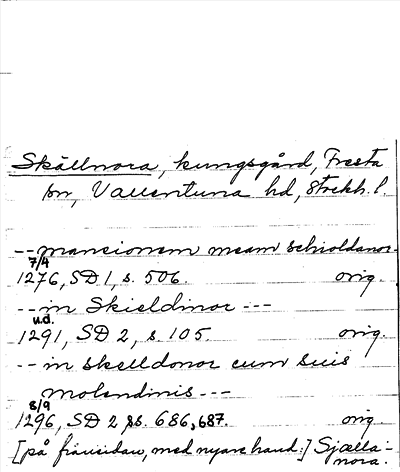 Skällnora, kungsgård, Fresta
sn, Vallentuna hd, Stockh. l.
-- mansionem meam schioldanor
7/4
1276, SD 1, s. 506. orig.
-- in Skieldinor ---
u.d.
1291, SD 2, s. 105. orig.
-- in skelldonor cum suis
molendinis ---
8/9
1296, SD 2 ss. 686, 687. orig.
[på frånsidan, med nyare hand:] Sjælla-
nora.